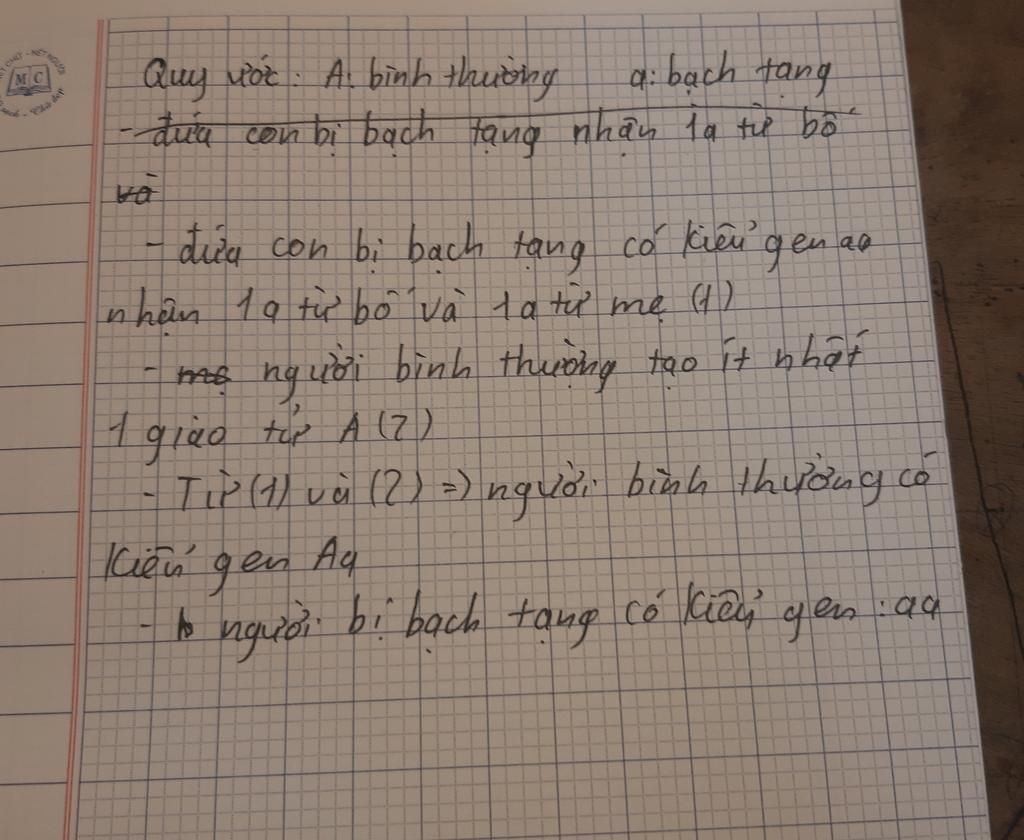 Quy ước: A: bình thường a: bạch tạng
- đứa con bị bạch tạng nhận 1a từ bố
và
- đứa con bị bạch tạng có kiểu gen aa
nhận 1a từ bố và 1a từ mẹ (1)
- mẹ người bình thường tạo ít nhất
1 giao tử A (2)
- Từ (1) và (2) => người bình thường có
kiểu gen Aa
- người bị bạch tạng có kiểu gen : aa
MC